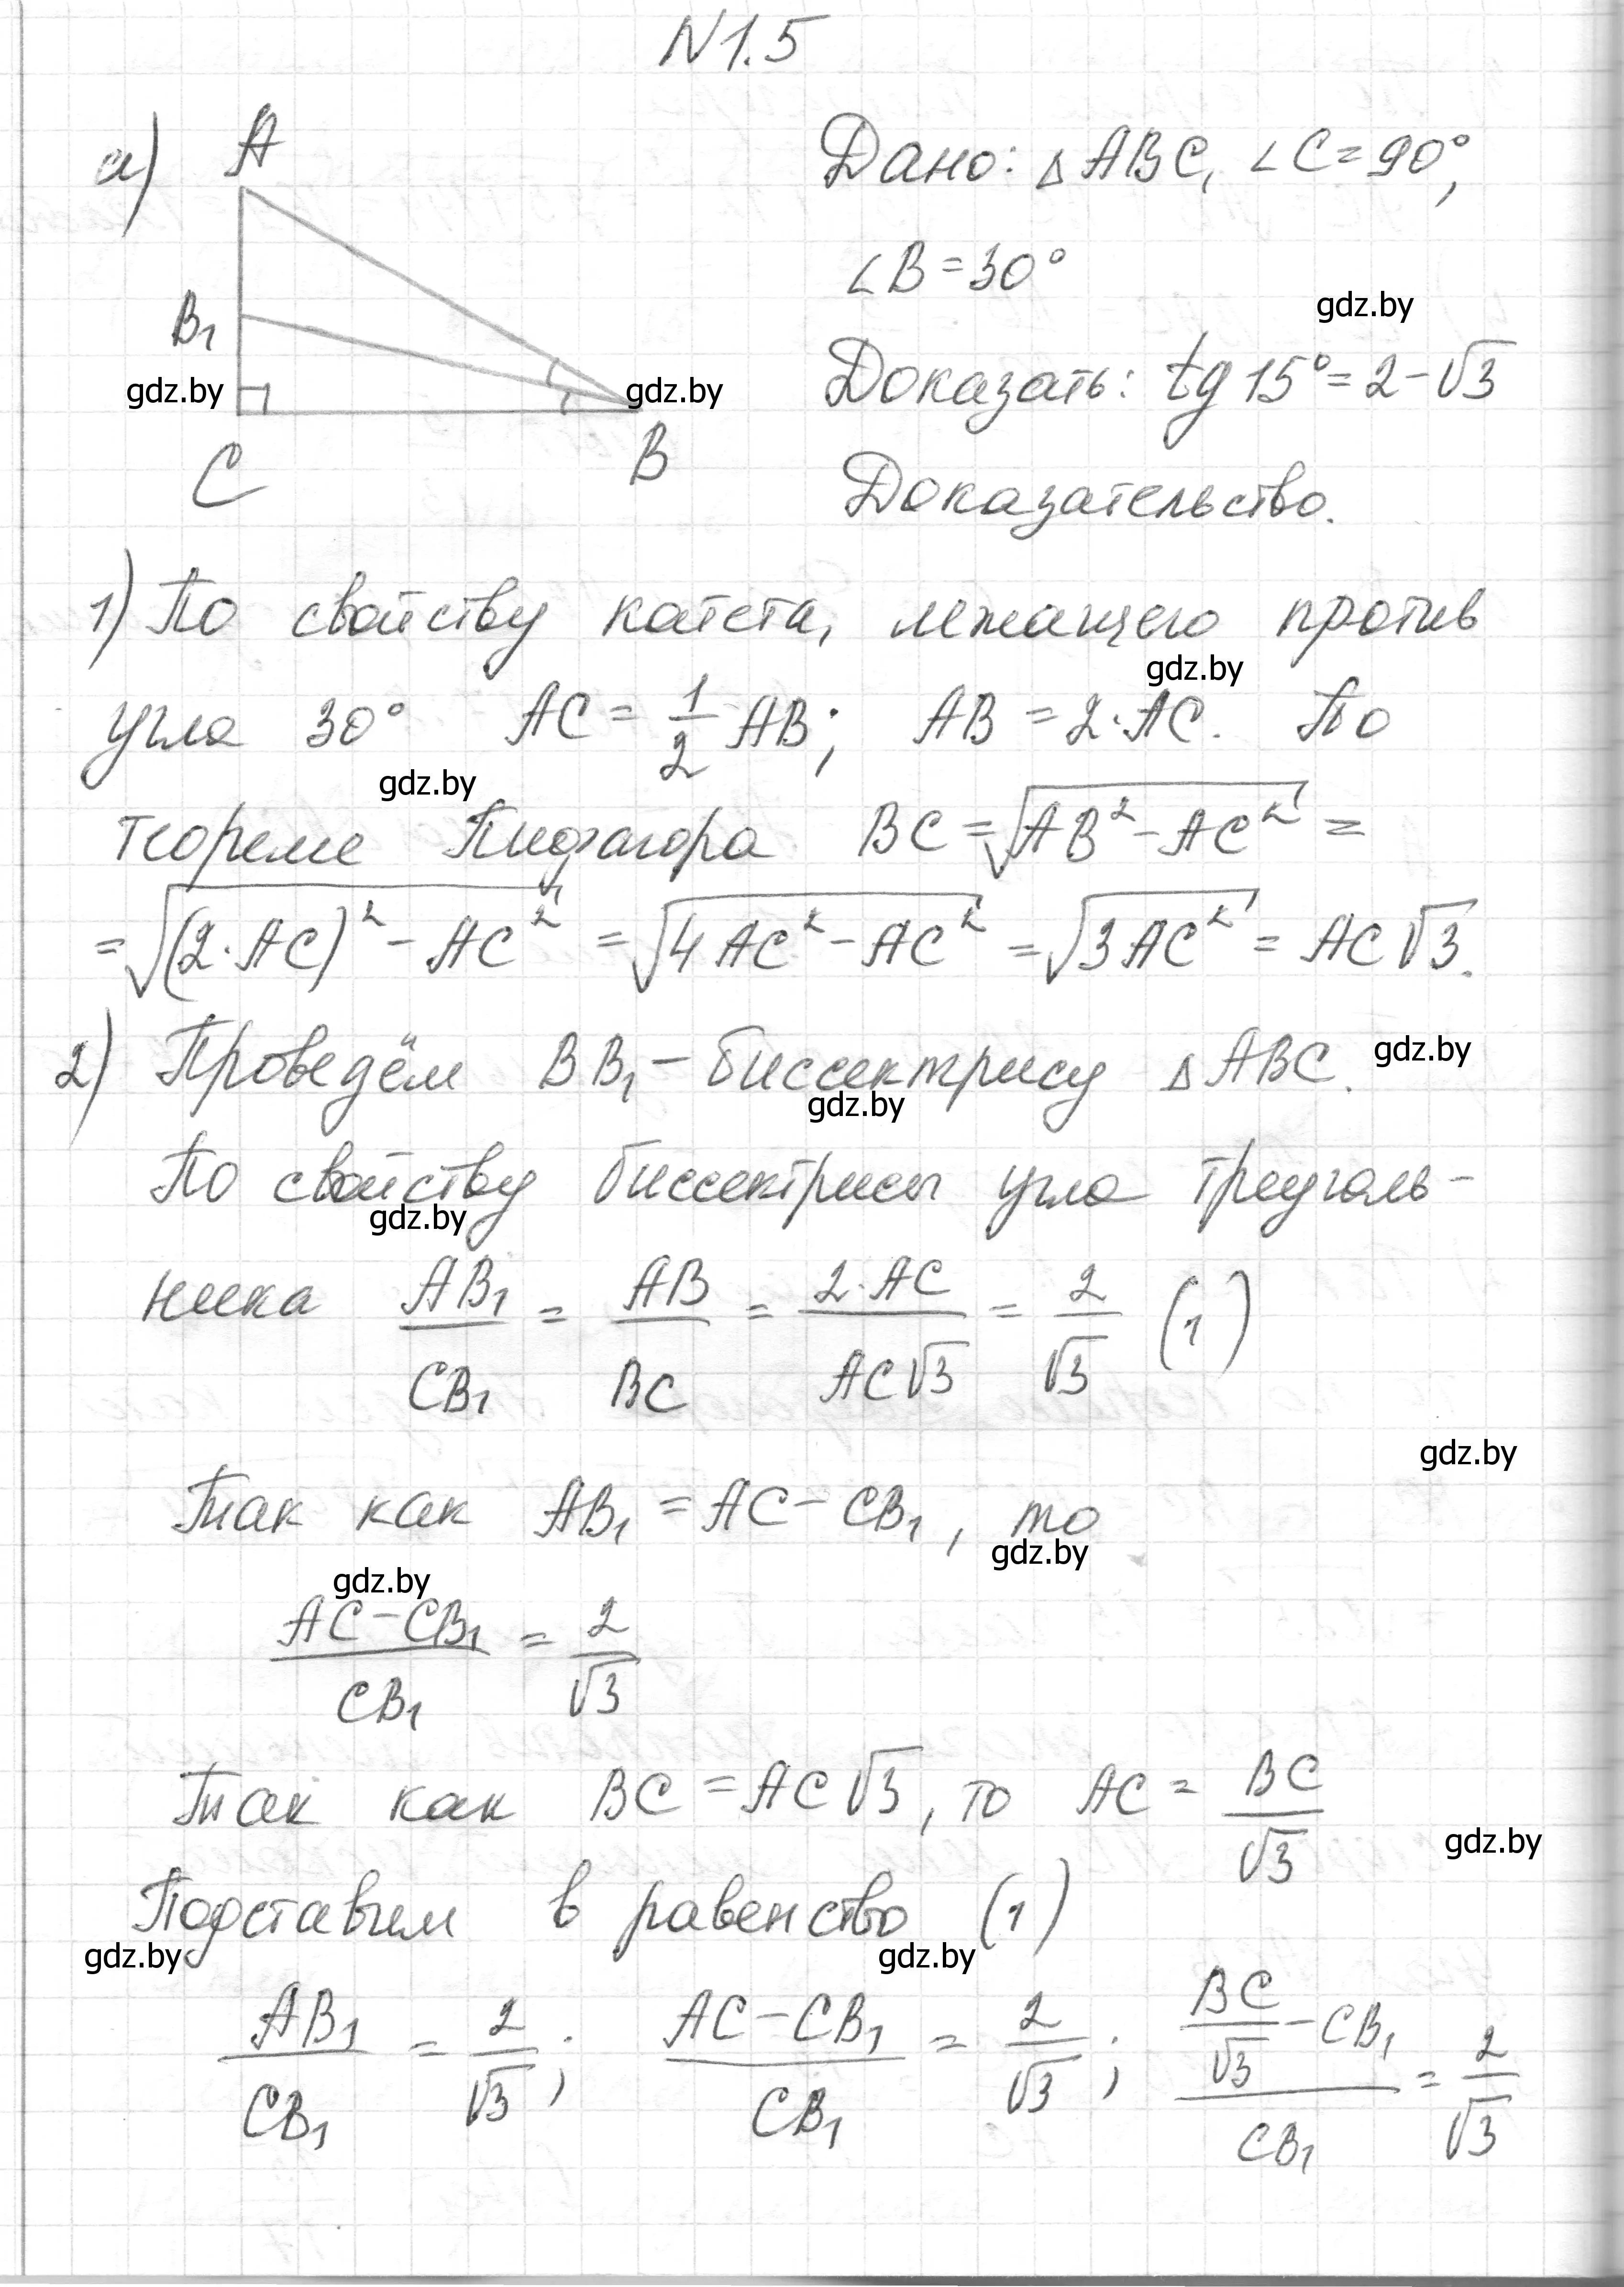 N1.5
а) A
B₁
C
B
Дано: △ABC, ∠C=90°,
∠B=30°
gdz.by
Доказать: tg 15°=2-√3
gdz.by
gdz.by
Доказательство.
1) По свойству катета, лежащего против
gdz.by
угла 30° AC = 1/2 AB; AB = 2·AC. По
gdz.by
теореме Пифагора BC = √(AB²-AC²) =
= √((2·AC)²-AC²) = √(4AC²-AC²) = √(3AC²) = AC√3.
2) Проведём BB₁ - биссектрису △ABC.
gdz.by
gdz.by
По свойству биссектрисы угла треуголь-
gdz.by
ника AB₁/CB₁ = AB/BC = 2·AC/AC√3 = 2/√3 (1)
gdz.by
Так как AB₁ = AC - CB₁, то
gdz.by
gdz.by
(AC-CB₁)/CB₁ = 2/√3
Так как BC = AC√3, то AC = BC/√3
gdz.by
Подставим в равенство (1)
gdz.by
gdz.by
AB₁/CB₁ = 2/√3; (AC-CB₁)/CB₁ = 2/√3; (BC/√3 - CB₁)/CB₁ = 2/√3